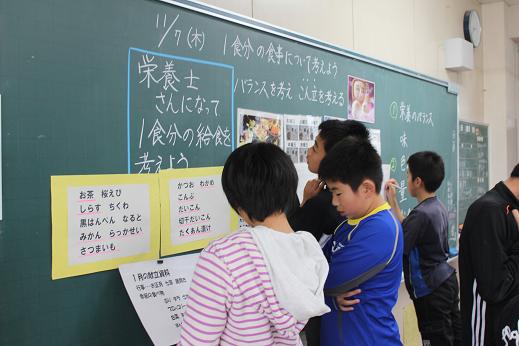 11/7(木)
1食分の食事について考えよう
バランスを考え こん立を考える
栄養士
さんになって
1食分の給食を
考えよう
① 栄養のバランス
味
② 色
量
お茶 桜えび
しらす ちくわ
黒はんぺん なると
みかん らっかせい
さつまいも
かつお わかめ
こんぶ
だいこん
切干だいこん
たくあん漬け
1月の献立資料